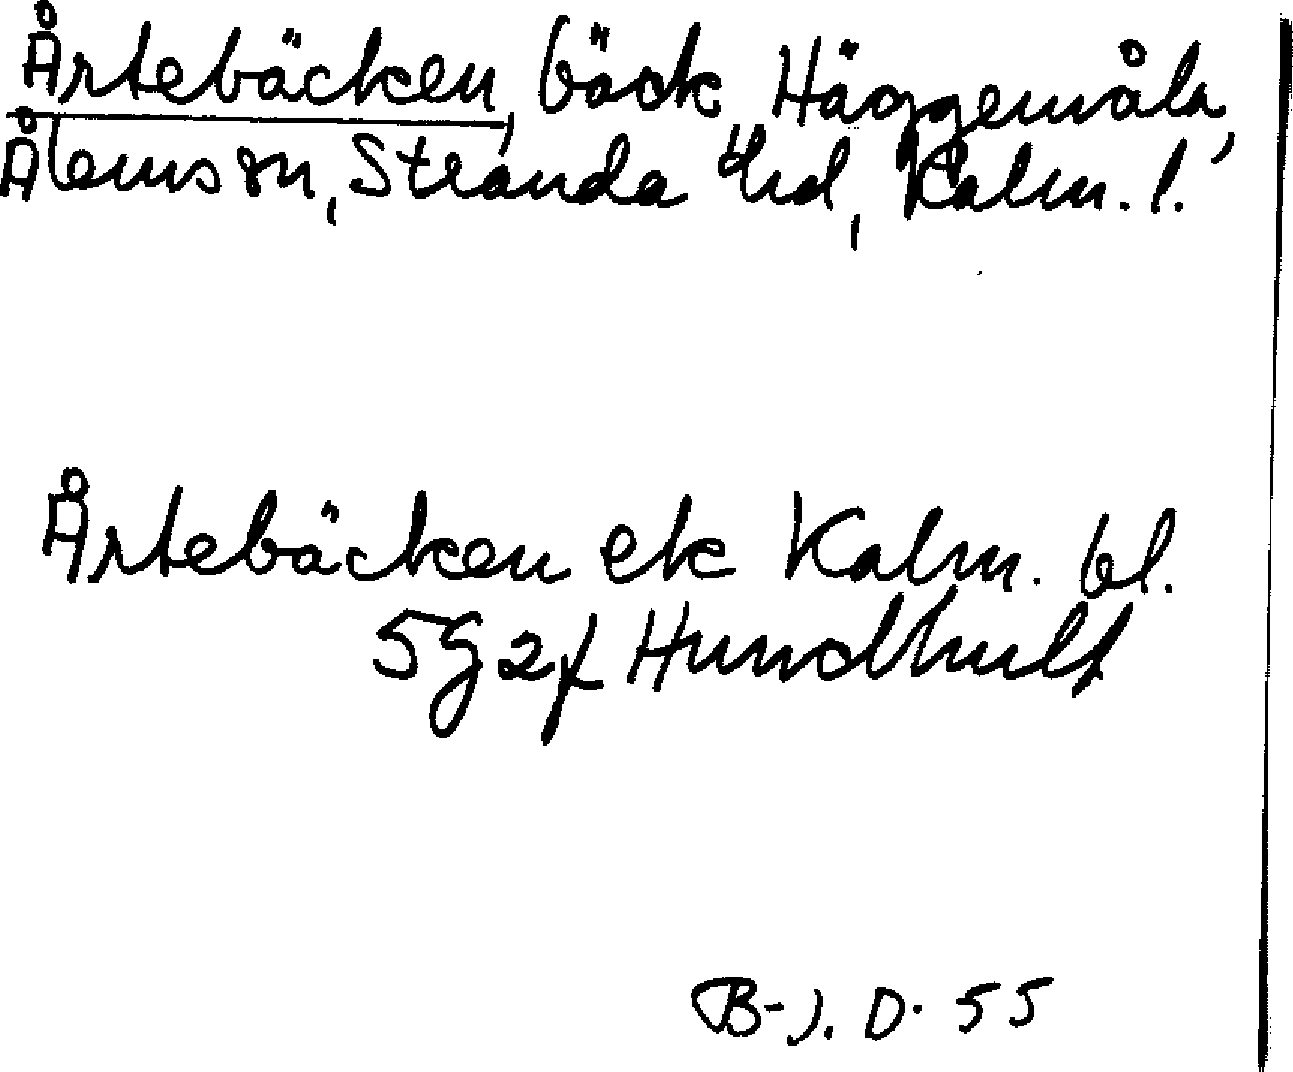 Årtebäcken, bäck, Häggemåla,
Ålems sn, Stranda hd, Kalm. l.
Årtebäcken ek Kalm. bl.
5g 2f Hundhult
B-J. D. 55